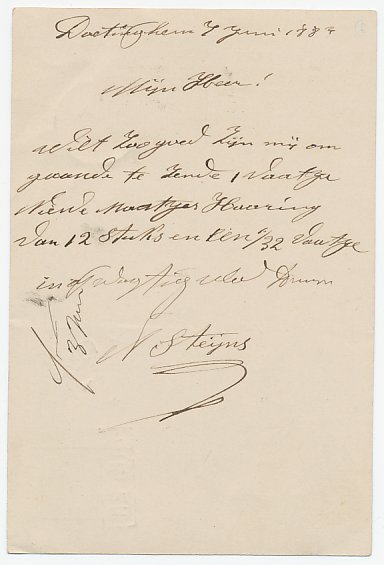 Doetinghem 7 Juni 188
Mijn Heer!
Wilt zoo goed zijn mij om
gaande te zende 1 vaatje
Nieuwe Maatjes Haaring
van 12 stuks en een 1/32 vaatje
in
Steijns